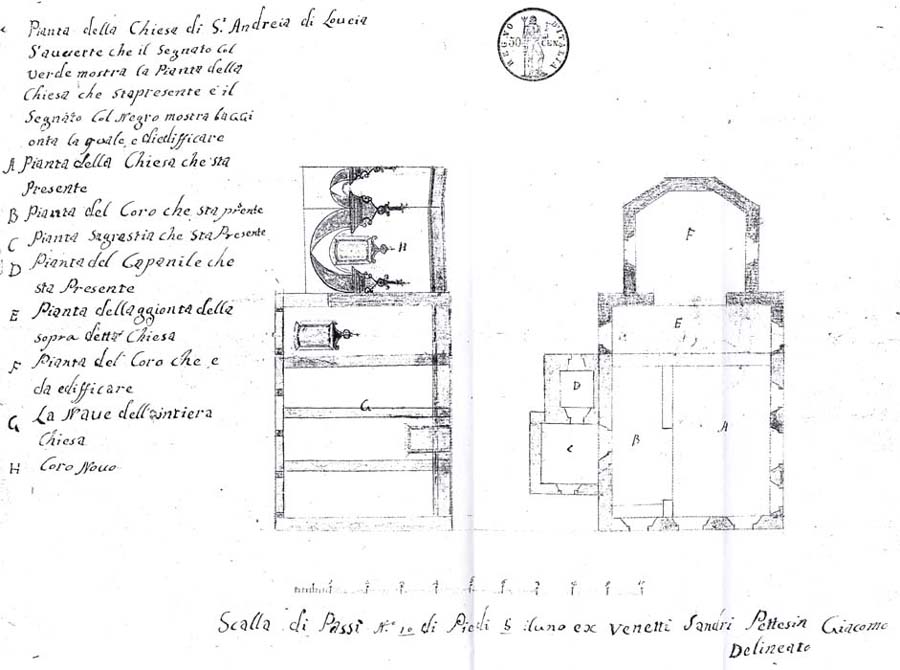 Pianta della Chiesa di S.t Andreia di Loucia
S'auuerte che il Segnato Col
verde mostra la Pianta della
Chiesa che stapresente e il
Segnato Col Negro mostra laggi
onta la quale e diedifficare
A Pianta della Chiesa che sta
Presente
B Pianta del Coro che sta prente
C Pianta Sagrastia che sta Presente
D Pianta del Capanile che
sta Presente
E Pianta dellaggionta della
sopra detta Chiesa
F Pianta del Coro che e
da edifficare
G La Naue dell'intiera
Chiesa
H Coro Nouo
REGNO D'ITALIA
50 CEN.
H
G
F
E
D
C
B
A
Scalla di Passi N.o 10 di Piedi 5 iluno ex Venetti Sandri Pettesin Giacomo
Delineato